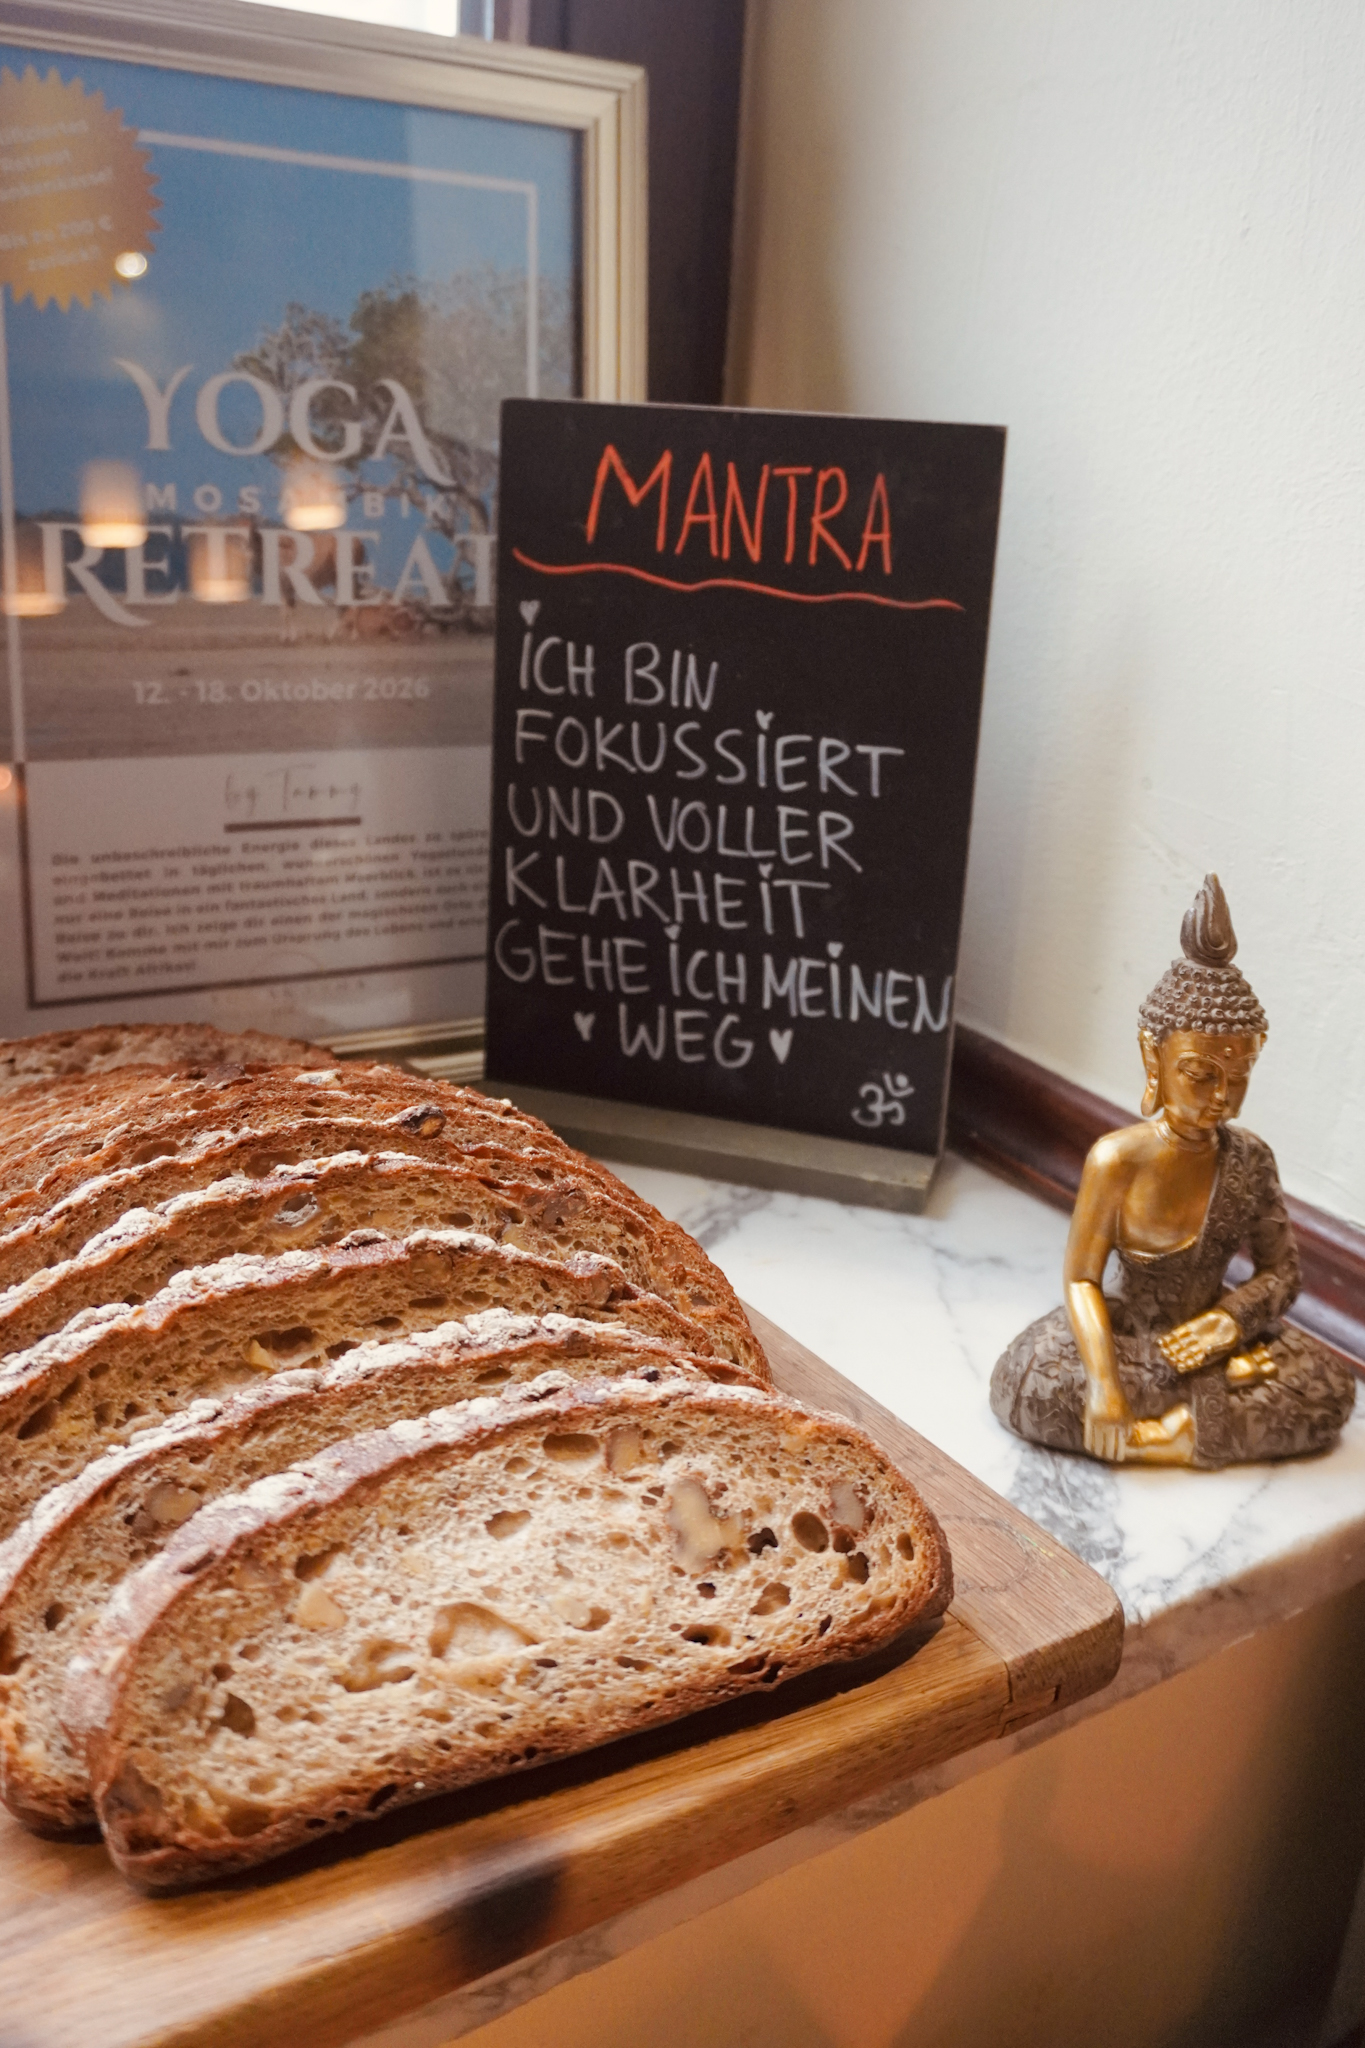 YOGA
MOSAMBIK
RETREAT
12. - 18. Oktober 2026
by Tammy
Die unbeschreibliche Energie dieses Landes zu
eingebettet in täglichen, wunderschönen
und Meditationen mit traumhaftem Meerblick, ist es
nur eine Reise in ein fantastisches Land, sondern auch
Reise zu dir. Ich zeige dir einen der magischsten Orte
Welt! Komme mit mir zum Ursprung des Lebens und
die Kraft Afrikas!
MANTRA
iCH BIN
FOKUSSiERT
UND VOLLER
KLARHEiT
GEHE iCH MEiNEN
♥ WEG ♥
ॐ